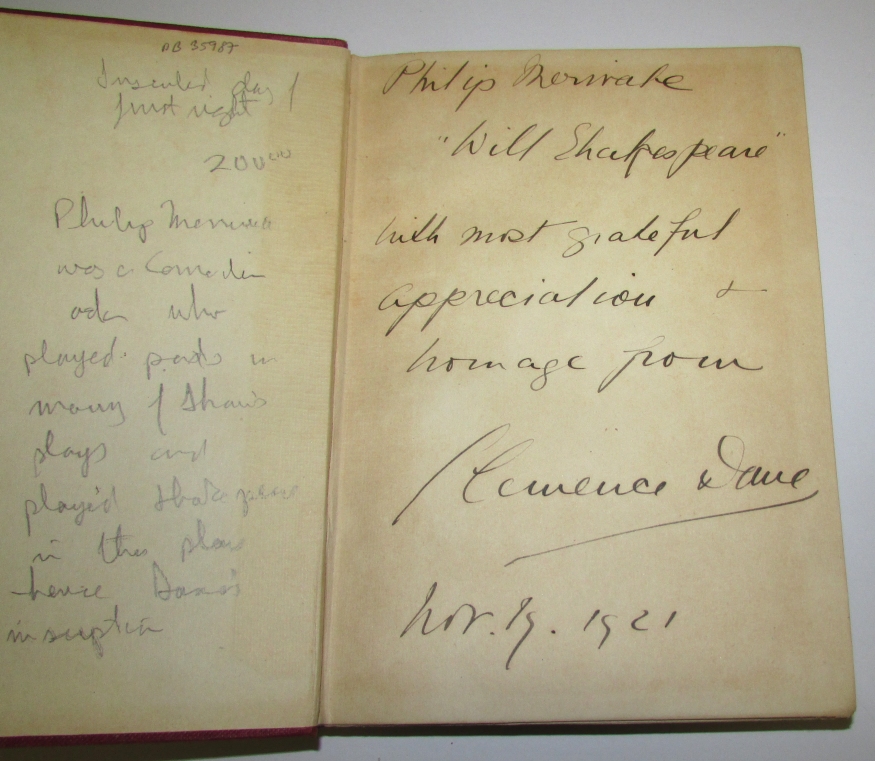 DB 35987
Inscribed day of
first night
200
Philip Merivale
was a Comedic
actor who
played parts in
many of Shaw's
plays and
played Shakespeare
in this play
hence Dane's
inscription
Philip Merivale
"Will Shakespeare"
with most grateful
appreciation &
homage from
Clemence Dane
Nov. 19. 1921